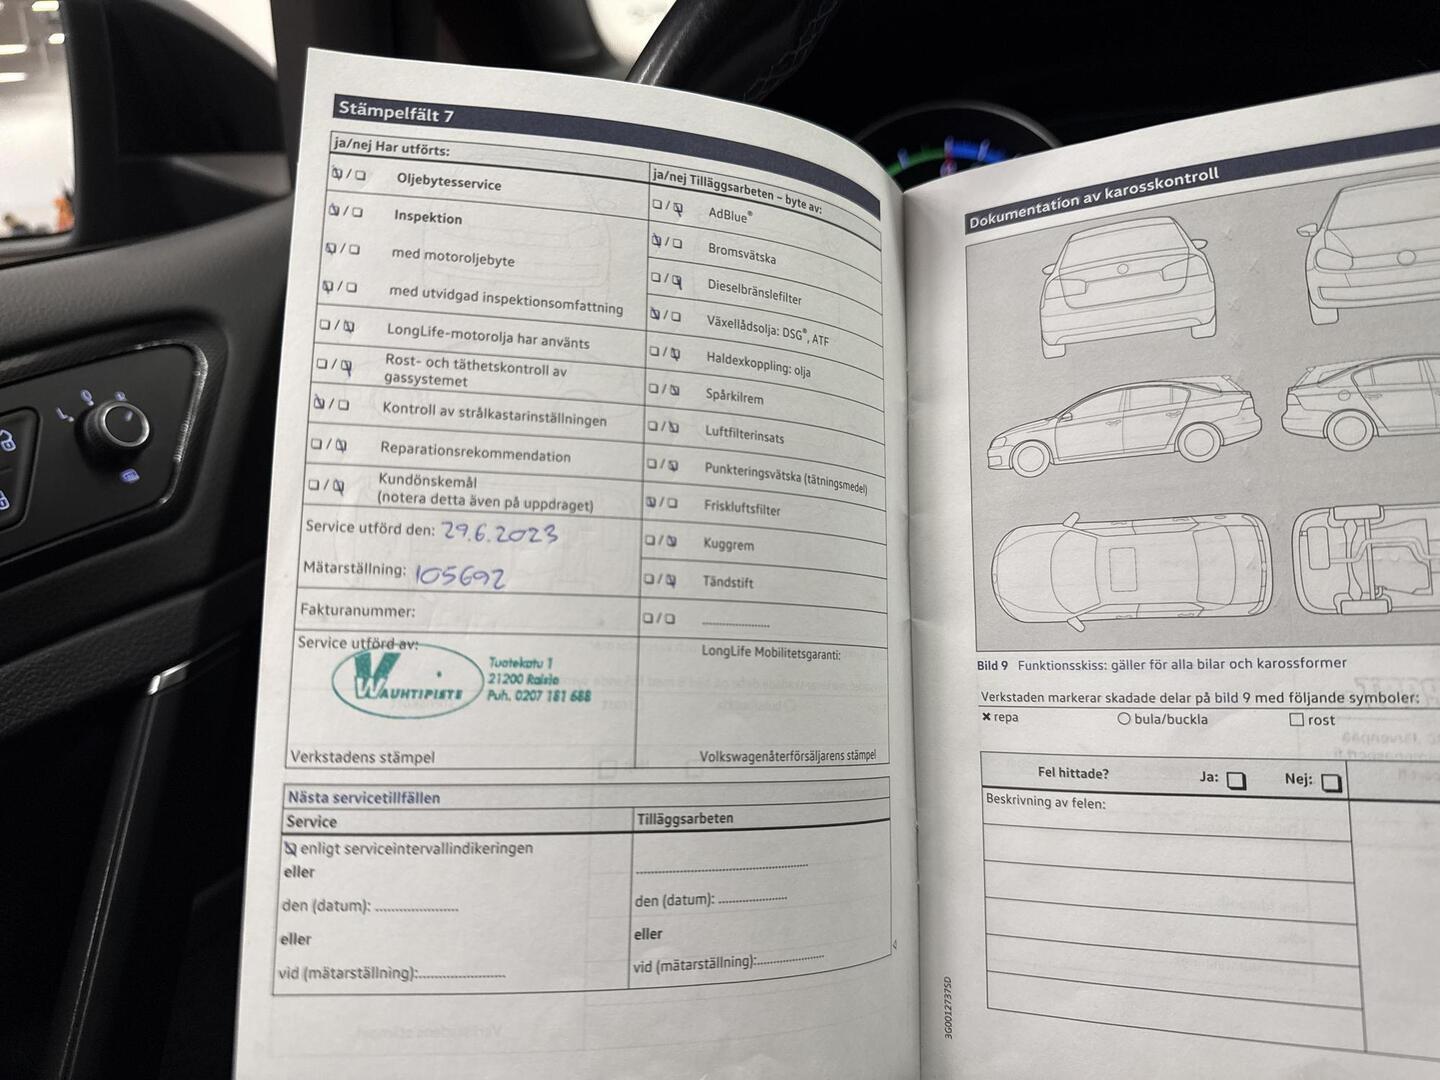 Stämpelfält 7
ja/nej Har utförts:
Oljebytesservice
Inspektion
med motoroljebyte
med utvidgad inspektionsomfattning
LongLife-motorolja har använts
Rost- och täthetskontroll av
gassystemet
Kontroll av strålkastarinställningen
Reparationsrekommendation
Kundönskemål
(notera detta även på uppdraget)
Service utförd den: 29.6.2023
Mätarställning: 105692
Fakturanummer:
Service utförd av:
WAUHTIPISTE
Tuotekatu 1
21200 Raisio
Puh. 0207 181 688
Verkstadens stämpel
ja/nej Tilläggsarbeten – byte av:
AdBlue®
Bromsvätska
Dieselbränslefilter
Växellådsolja: DSG®, ATF
Haldexkoppling: olja
Spårkilrem
Luftfilterinsats
Punkteringsvätska (tätningsmedel)
Friskluftsfilter
Kuggrem
Tändstift
LongLife Mobilitetsgaranti:
Volkswagenåterförsäljarens stämpel
Nästa servicetillfällen
Service
enligt serviceintervallindikeringen
eller
den (datum):
eller
vid (mätarställning):
Tilläggsarbeten
den (datum):
eller
vid (mätarställning):
Dokumentation av karosskontroll
Bild 9 Funktionsskiss: gäller för alla bilar och karossformer
Verkstaden markerar skadade delar på bild 9 med följande symboler:
repa
bula/buckla
rost
Fel hittade? Ja: Nej:
Beskrivning av felen:
3G0012737SD